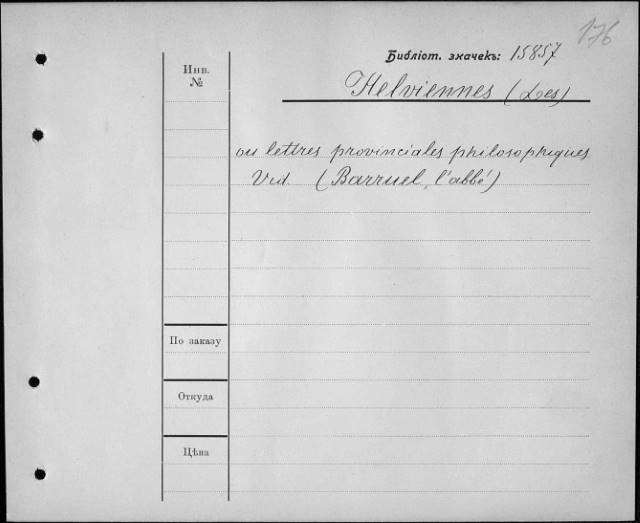 176
Библіот. значекъ: 15857
Helviennes (Les)
Инв.
№
ou lettres provinciales philosophiques
Vid. (Barruel, l'abbé)
По заказу
Откуда
Цѣна